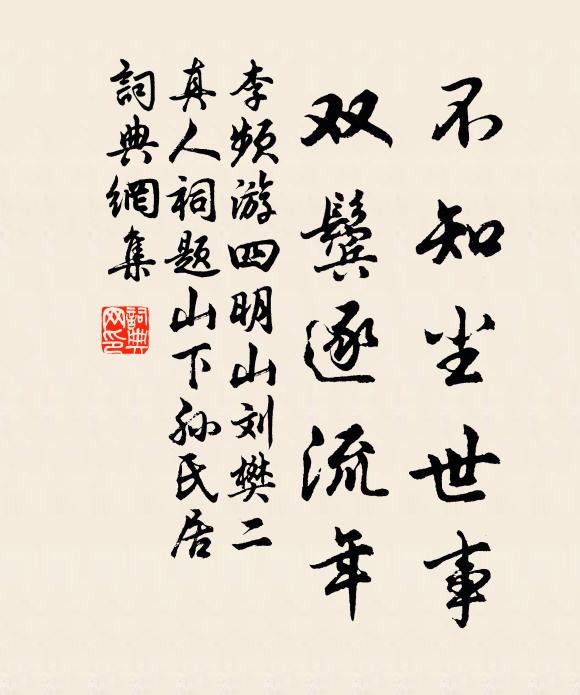 不知尘世事
双鬓逐流年
李频游四明山刘樊二
真人祠题山下孙氏居
詞典網集
詞典网印